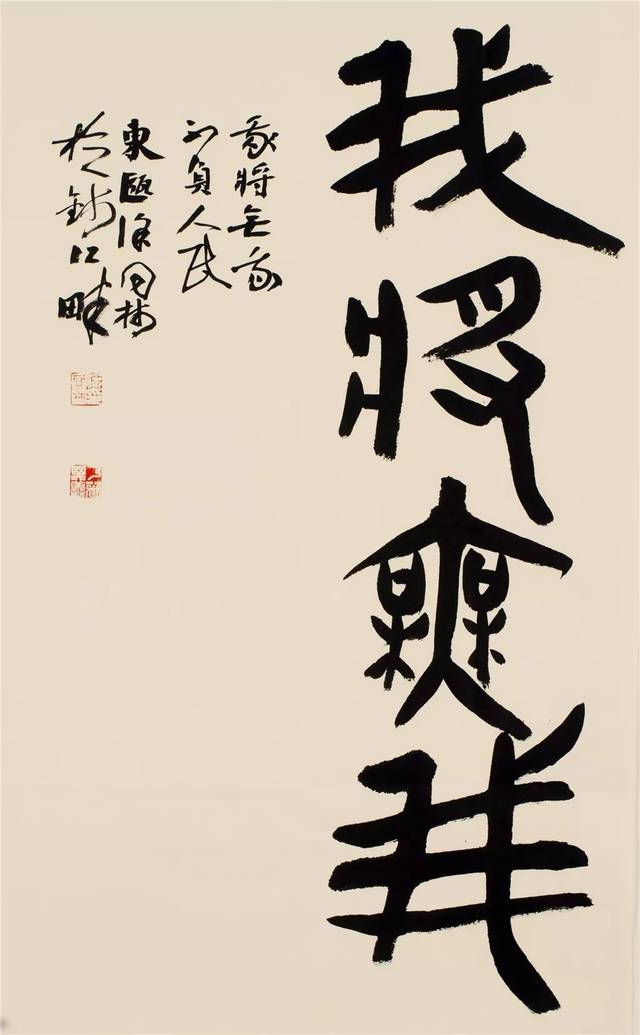 我將無我
我將无我
不負人民
東甌徐同林
於錢江畔